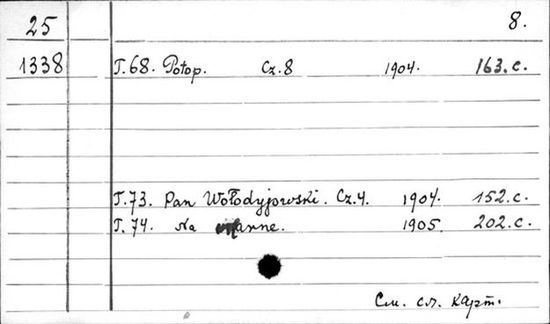 25 8.
1338 T.68. Potop. Cz.8 1904. 163.c.
T.73. Pan Wołodyjowski. Cz.4. 1904. 152.c.
T.74. Na marne. 1905. 202.c.
См. сл. карт.